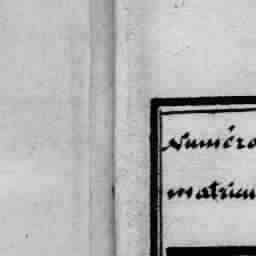 Numéro
matricu